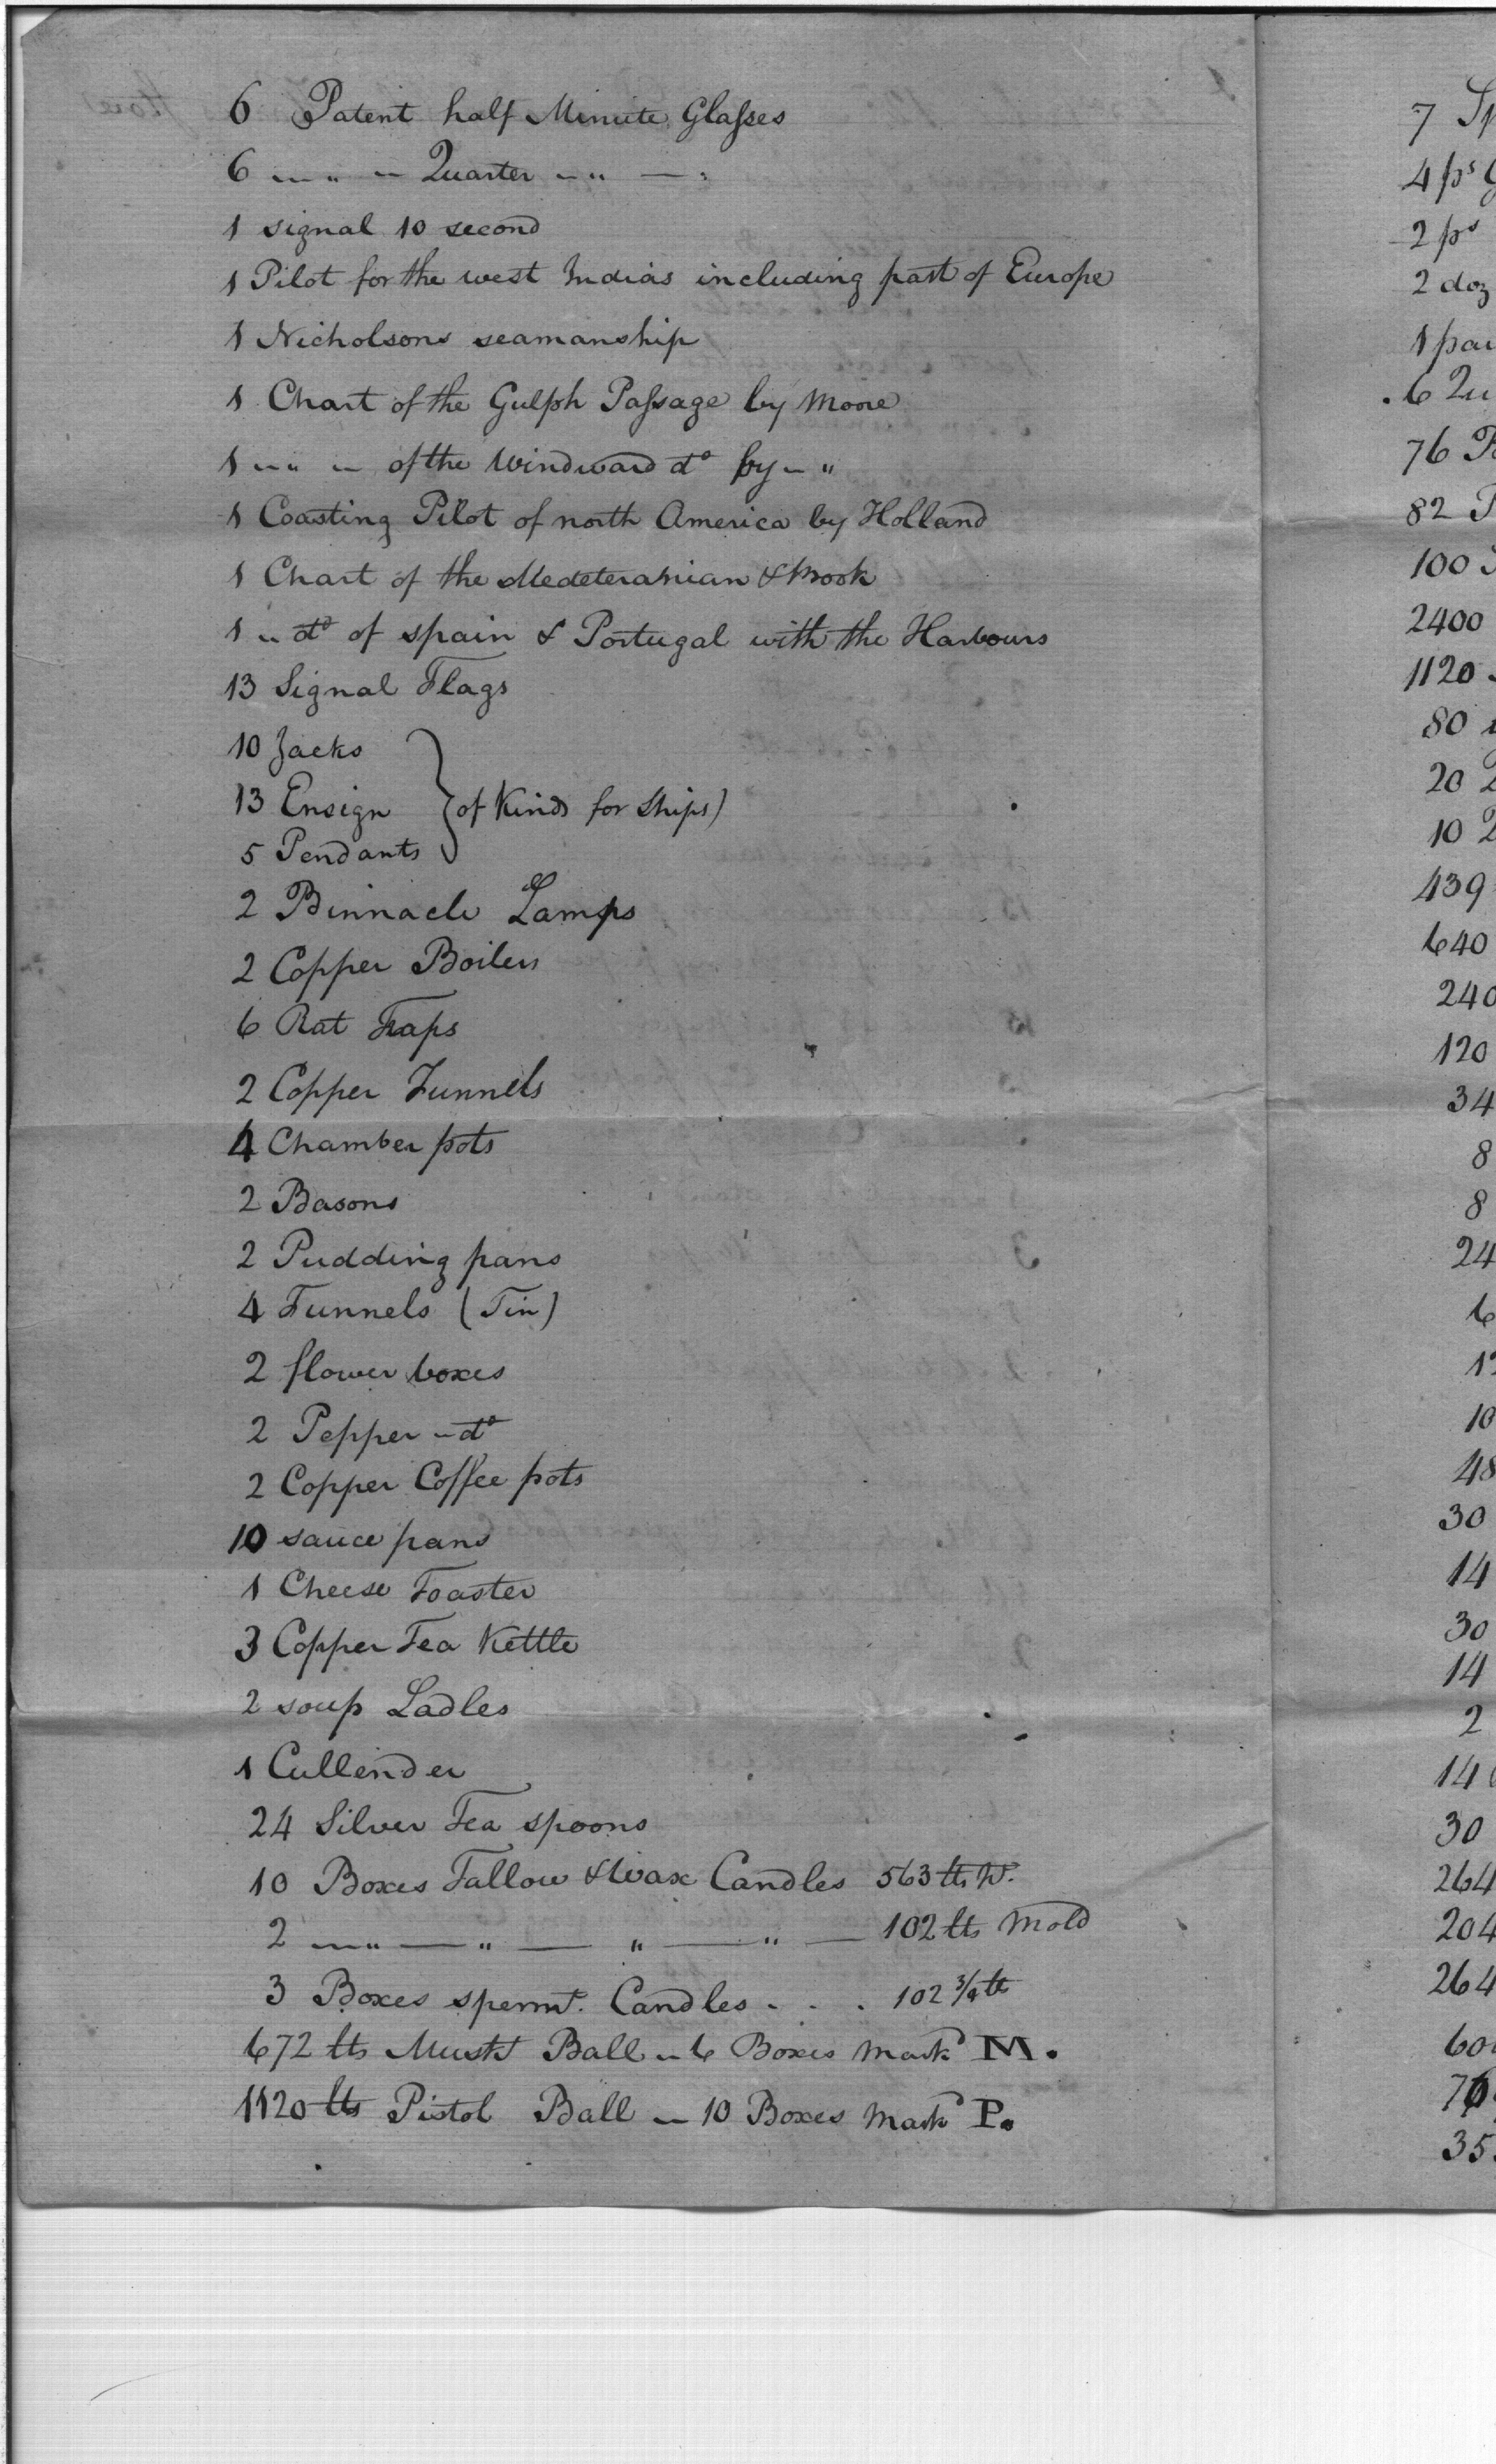 6 Patent half Minute Glasses
6 — " — Quarter — " — "
1 signal 10 second
1 Pilot for the west Indias including part of Europe
1 Nicholsons seamanship
1 Chart of the Gulph Passage by Moore
1 — " — of the Windward do by — "
1 Coasting Pilot of north America by Holland
1 Chart of the Medeteranian & Book
1 — do of spain & Portugal with the Harbours
13 Signal Flags
10 Jacks
13 Ensign } of Kinds for Ships)
5 Pendants
2 Binnacle Lamps
2 Copper Boilers
6 Rat Traps
2 Copper Funnels
4 Chamber pots
2 Basons
2 Pudding pans
4 Funnels (Tin)
2 flower boxes
2 Pepper — do
2 Copper Coffee pots
10 sauce pans
1 Cheese Toaster
3 Copper Tea Kettle
2 soup Ladles
1 Cullender
24 Silver Tea spoons
10 Boxes Tallow & Wax Candles 563 lbs Wt.
2 — " — " — " — " — 102 lbs Mold
3 Boxes spermt. Candles - . . 102 3/4 lb
672 lbs Muskt Ball — 6 Boxes Mark M.
1120 lbs Pistol Ball — 10 Boxes Mark P.
7 Sp
4 ps G
2 ps
2 doz
1 pai
6 Qu
76 P
82
100
2400
1120
80
20
10
439
640
240
120
34
8
8
24
6
12
10
48
30
14
30
14
2
14
30
264
204
264
60
35